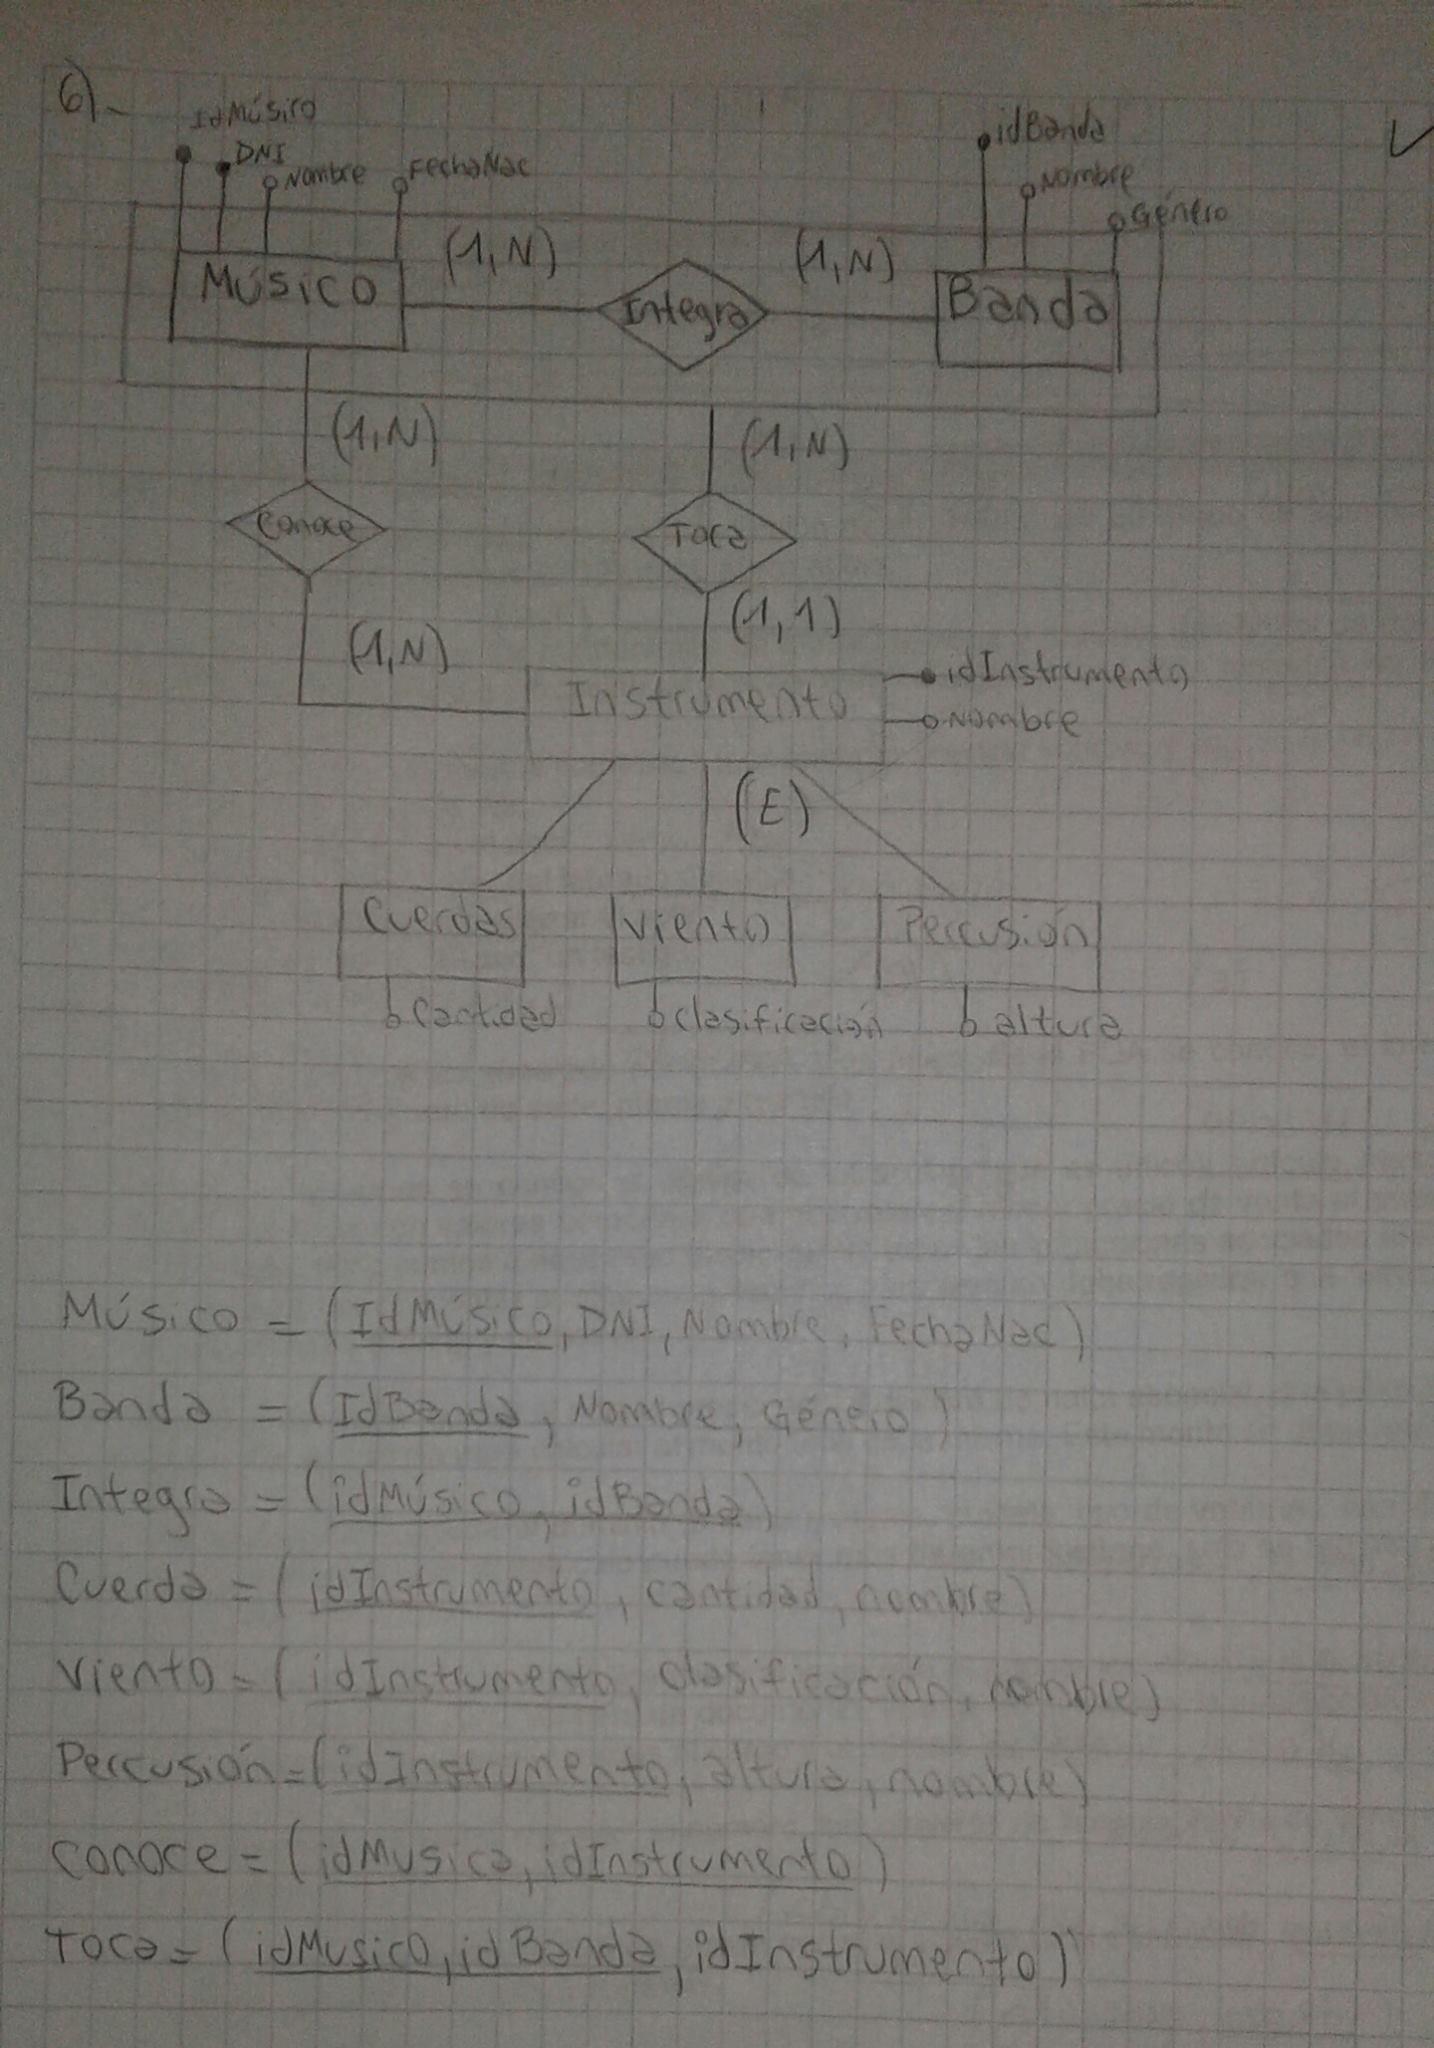 6)-
IdMúsico
DNI
Nombre
FechaNac
idBanda
Nombre
Género
Músico
(1,N)
Integra
(1,N)
Banda
(1,N)
(1,N)
Conoce
Toca
(1,N)
(1,1)
Instrumento
idInstrumento
Nombre
(E)
Cuerdas
Viento
Percusión
Cantidad
clasificación
altura
Músico = (IdMúsico, DNI, Nombre, FechaNac)
Banda = (IdBanda, Nombre, Género)
Integra = (idMúsico, idBanda)
Cuerda = (idInstrumento, cantidad, nombre)
Viento = (idInstrumento, clasificación, nombre)
Percusión = (idInstrumento, altura, nombre)
Conoce = (idMusico, idInstrumento)
Toca = (idMusico, idBanda, idInstrumento)